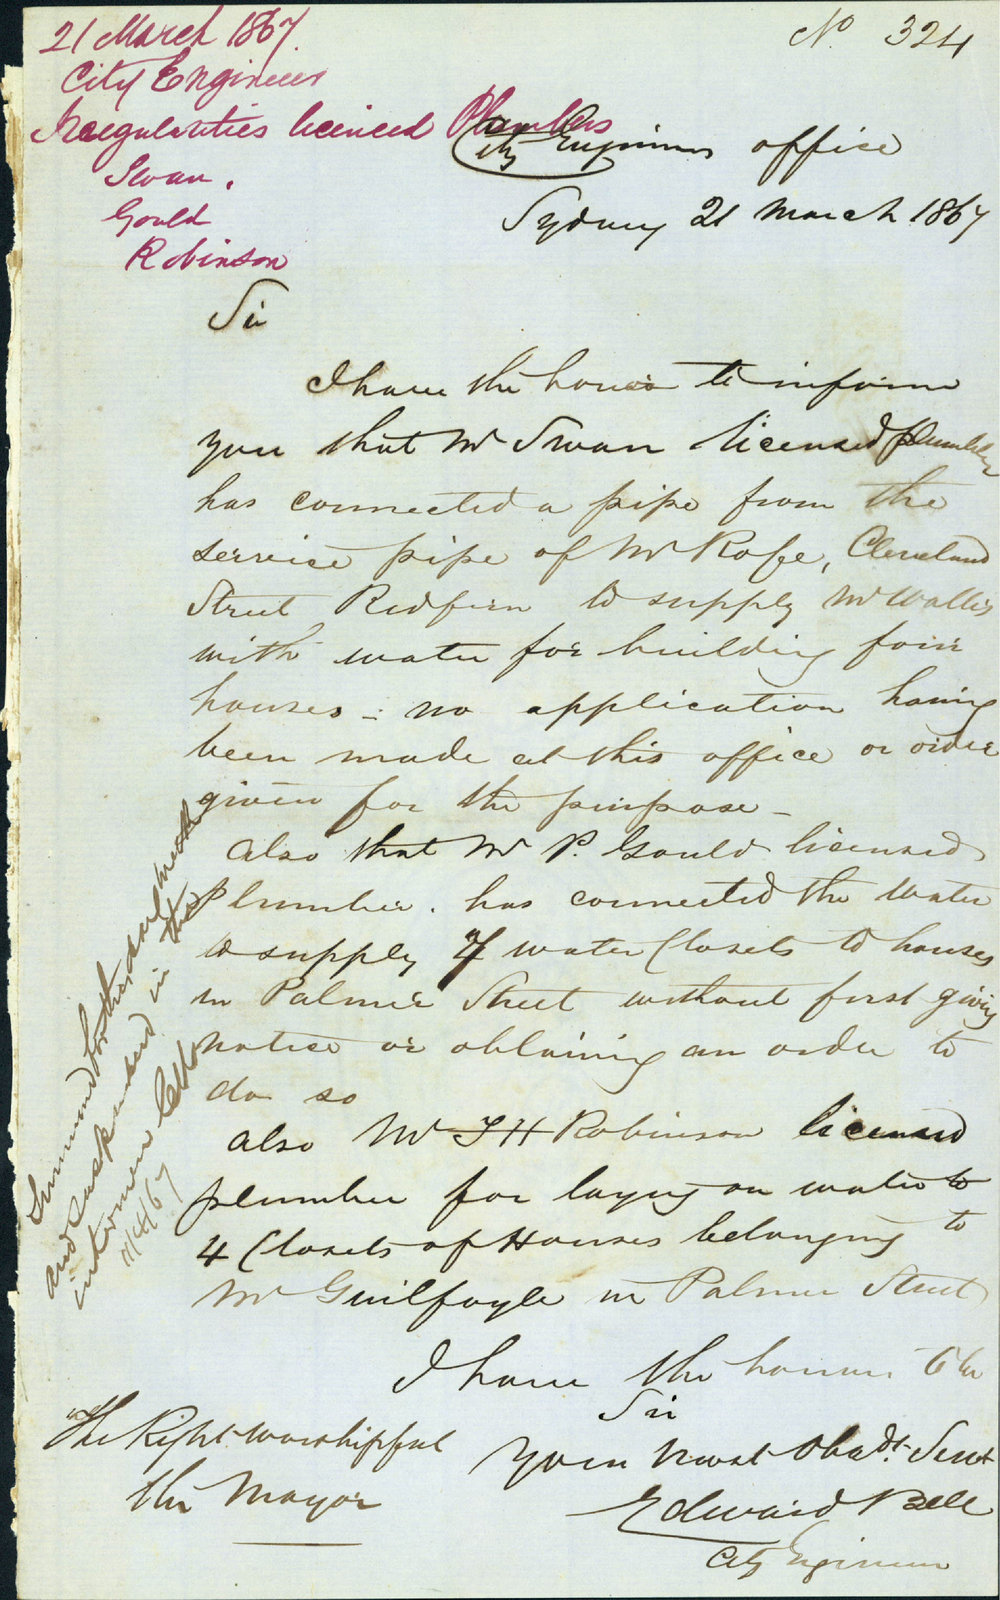 21 March 1867.
City Engineer
Irregularities licenced Plumbers
Swan.
Gould
Robinson
No 324
City Engineers office
Sydney 21 March 1867
Sir
I have the honor to inform
you that Mr Swan licensed plumber
has connected a pipe from the
service pipe of Mr Rofe, Cleveland
Street Redfern to supply Mr Wallis
with water for building four
houses - no application having
been made at this office or order
given for the purpose -
Also that Mr P. Gould licensed
Plumber. has connected the water
to supply 7 water Closets to houses
in Palmer Street without first giving
notice or obtaining an order to
do so
also Mr T H Robinson licensed
plumber for laying on water to
4 Closets of Houses belonging to
Mr Guilfoyle in Palmer Street
I have the honor to be
Sir
Your most Obedt. Servt
Edward Bell
City Engineer
The Right worshipful
the Mayor
Summoned for this day month
and suspended in the
interim letter
11/4/67